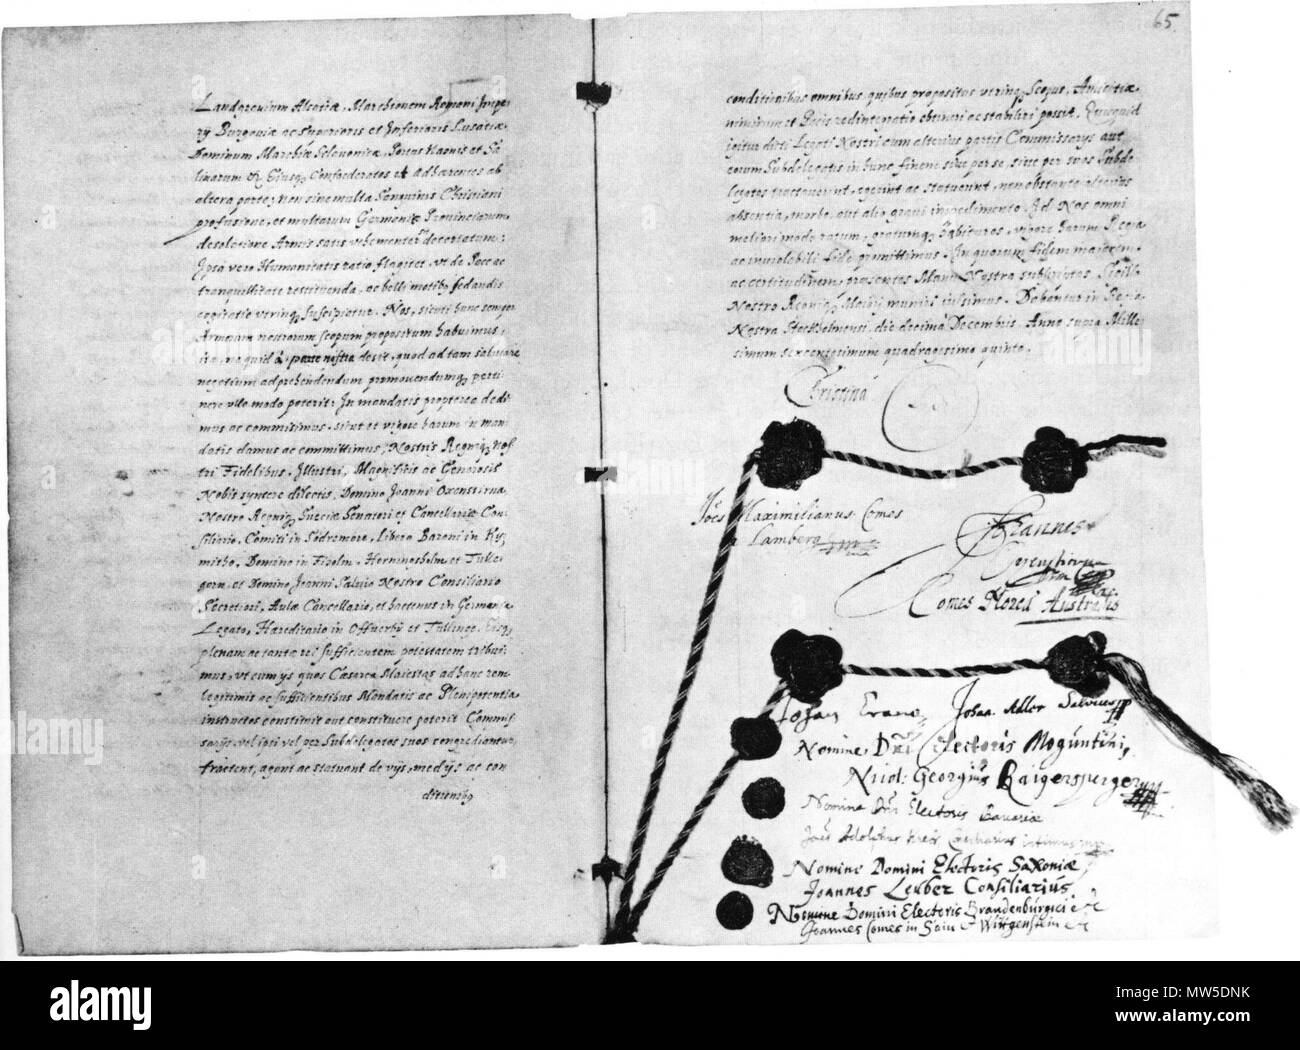 Landgravium Alsatiæ, Marchionem Romani Impe-
rij Burgoviæ ac Superioris et Inferioris Lusatiæ
Dominum Marchiæ Sclavonicæ, Portus Naonis et Sa
linarum &c Ejusq Confœderatos et adhærentes ab
altera parte, non sine multa Sanguinis Christiani
profusione, et multarum Germaniæ Provinciarum
desolatione Armis satis vehementer decertatum;
Ipsa vero Humanitatis ratio flagitet, vt de Pace ac
tranquillitate restituenda, ac belli motibus sedandis
cogitatio vtrinq suscipiatur. Nos, sicuti hunc semper
Armorum nostrorum scopum propositum habuimus,
ita, ne quid à parte nostra desit, quod ad tam salutare
negotium adprehendendum promovendumq perti
nere vllo modo poterit: In mandatis propterea dedi
mus ac commisimus, sicut et vigore harum in man
datis damus ac committimus, Nostris Regniq nos
tri Fidelibus, Illustri, Magnificis ac Generosis
Nobis syncere dilectis, Domino Joanni Oxenstirna,
Nostro Regniq Sueciæ Senatori et Cancellariæ Con
siliario, Comiti in Södremore, Libero Baroni in Ky
mitho, Domino in Fiholm, Horningsholm et Tulle
garn, et Domino Joanni Salvio Nostro Consiliario
Secretiori, Aulæ Cancellario, et hactenus in Germania
Legato, Hæreditario in Offuerby et Tullinge. Eisq
plenam ac tantæ rei sufficientem potestatem tribui
mus, vt cum ijs quos Cæsarea Majestas ad hanc rem
legitimis ac sufficientibus Mandatis ac Plenipotentia
instructos constituit aut constituere poterit Commis
sarijs, vel ipsi vel per Subdelegatos suos congrediantur,
tractent, agant ac statuant de vijs, medijs ac con
ditionibq
65
conditionibus omnibus quibus propositus vtrinq scopus, Amicitiæ
nimirum et Pacis redintegratio obtineri ac stabiliri possit. Quicquid
igitur dicti Legati Nostri cum alterius partis Commissarijs aut
eorum Subdelegatis in hunc finem sive per se, sive per suos Subde
legatos tractaverint, egerint ac statuerint, non obstante alterius
absentia, morbo, aut alio gravi impedimento Id Nos omni
meliori modo ratum, gratumq habituros, vigore harum Regia
ac inviolabili fide promittimus. In quorum fidem majorem
ac certitudinem, præsentes Manu Nostra subscriptas Sigillo
Nostro Regniq Majori muniri jussimus. Dabantur in Regia
Nostra Stockholmensi, die decima Decembris, Anno supra Mille
simum sexcentesimum quadragesimo quinto.
Christina
Joës Maximilianus Comes
a Lamberg
Johannes
Comes
Johan Crane Johan Adler Salvius
Nomine Dni Electoris Moguntini,
Nicol: Georgius Raigersperger
Nomine Dni Electoris Bavariæ
Joës Adolphus Consiliarius intimus
Nomine Domini Electoris Saxoniæ
Joannes Leuber Consiliarius
Nomine Domini Electoris Brandenburgici &c
Joannes Comes in Sain & Wittgenstein &c
alamy
Image ID: MW5DNK
www.alamy.com